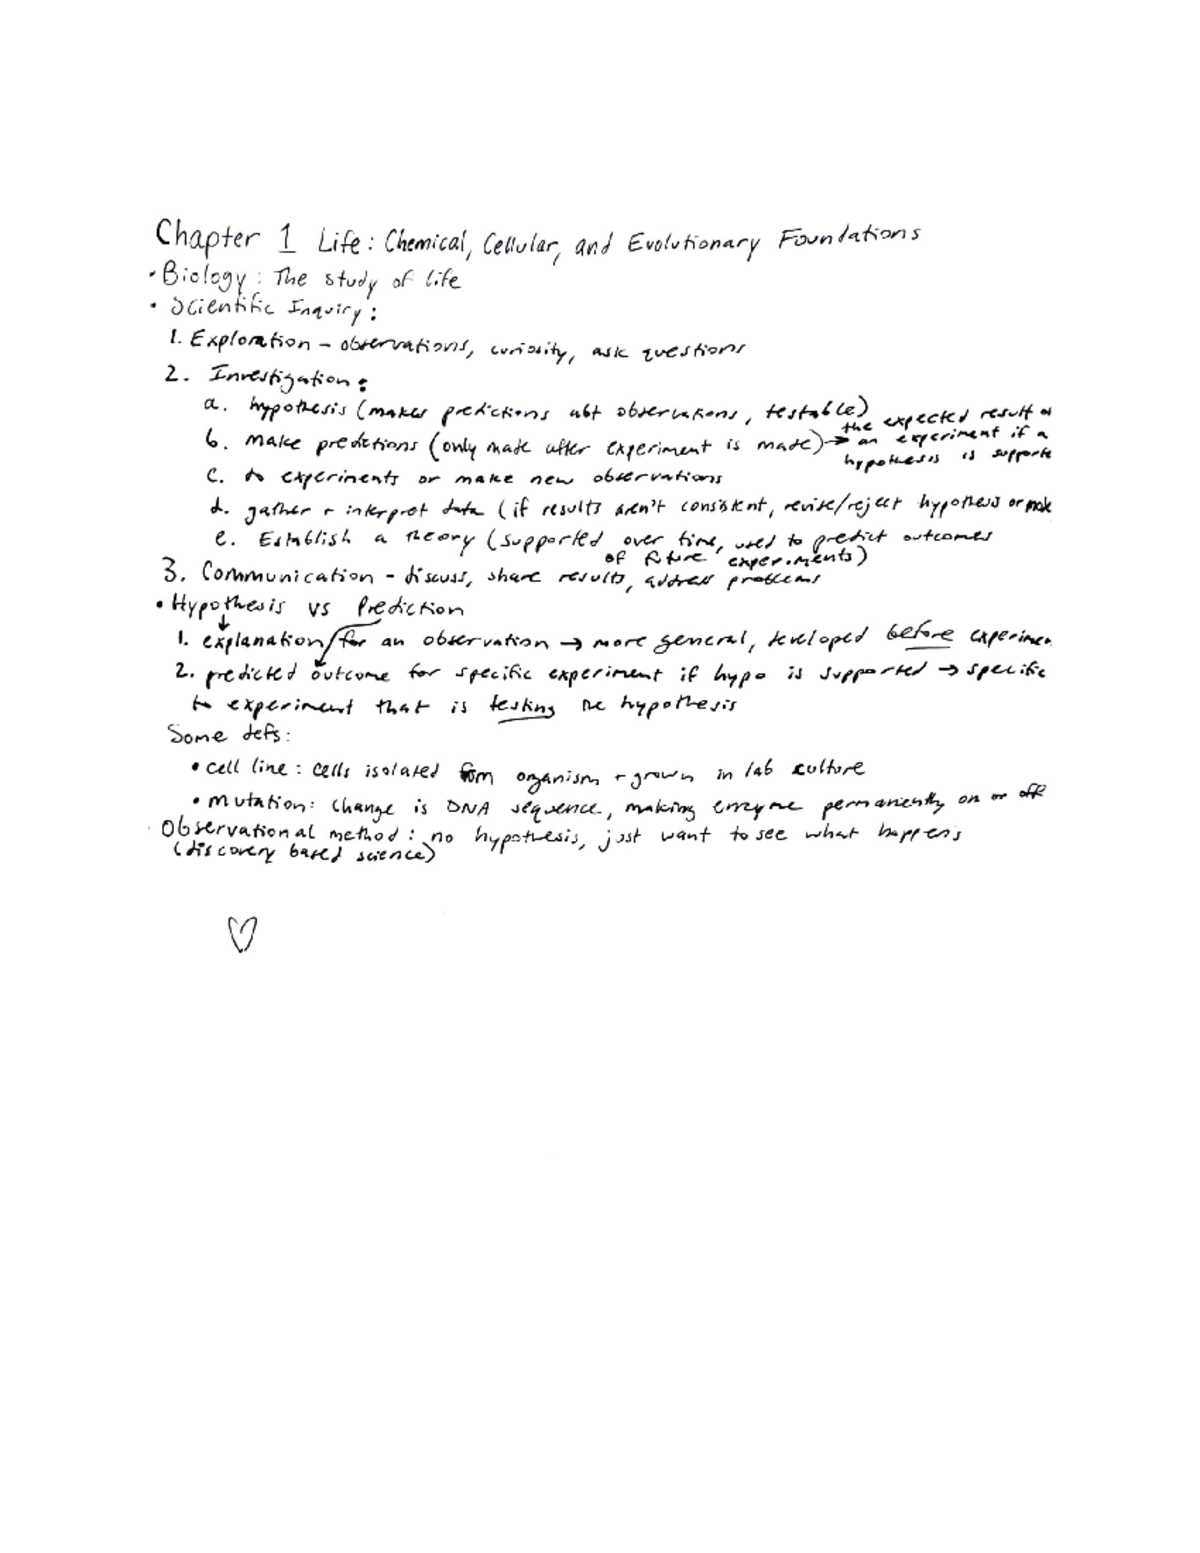 Chapter 1 Life: Chemical, Cellular, and Evolutionary Foundations
• Biology: The study of life
• Scientific Inquiry:
1. Exploration - observations, curiosity, ask questions
2. Investigation:
a. hypothesis (makes predictions abt observations, testable)
b. make predictions (only made after experiment is made) → the expected result of
an experiment if a
hypothesis is supporte
c. do experiments or make new observations
d. gather + interpret data (if results aren't consistent, revise/reject hypothesis or mak
e. Establish a theory (supported over time, used to predict outcomes
of future experiments)
3. Communication - discuss, share results, address problems
• Hypothesis vs Prediction
1. explanation/for an observation → more general, developed before experimen
2. predicted outcome for specific experiment if hypo is supported → specific
to experiment that is testing the hypothesis
Some defs:
• cell line: cells isolated from organism + grown in lab culture
• Mutation: Change is DNA sequence, making enzyme permanently on or off
Observational method: no hypothesis, just want to see what happens
(discovery based science)